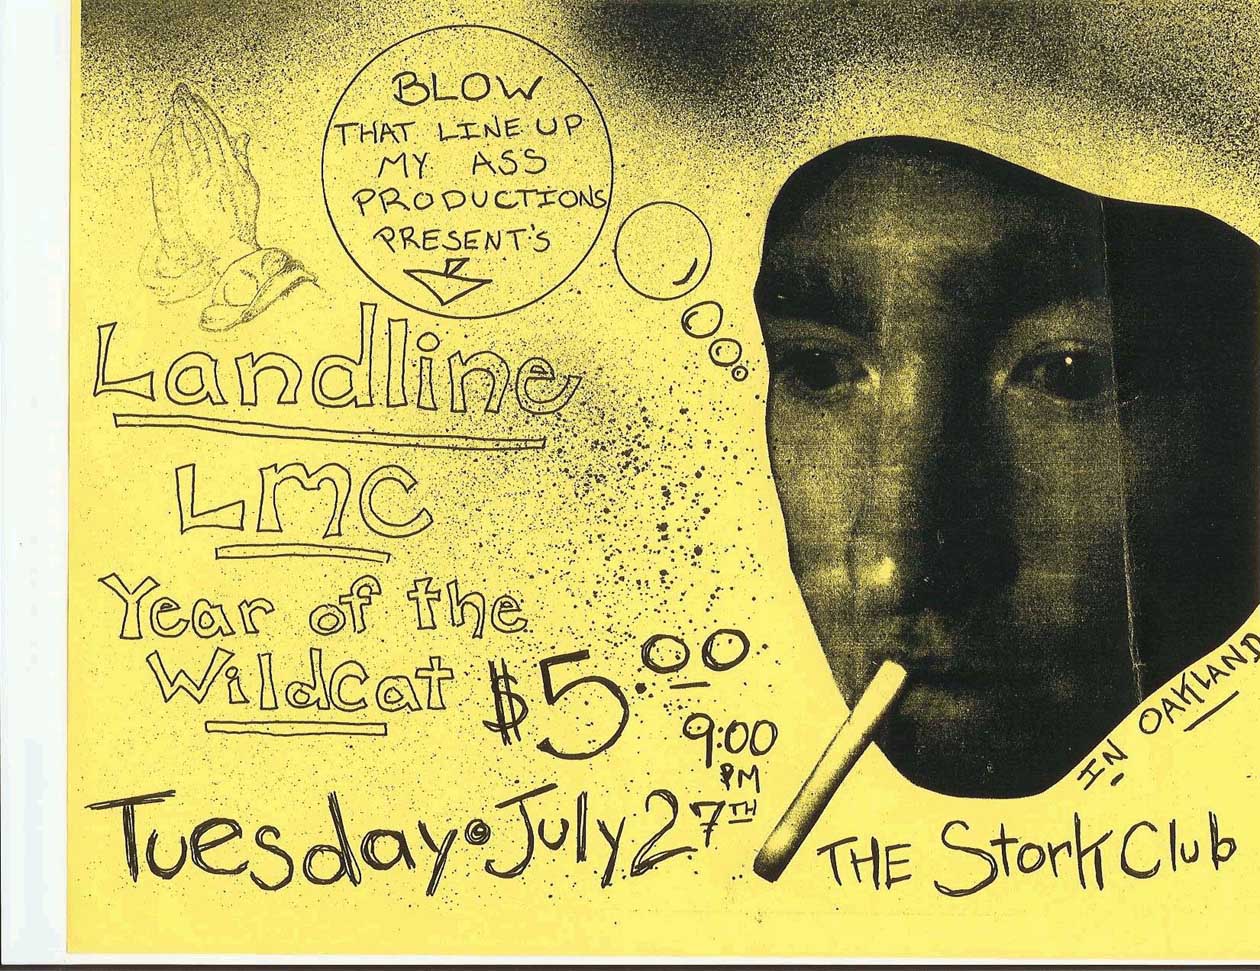 BLOW
THAT LINE UP
MY ASS
PRODUCTIONS
PRESENT'S
Landline
LMC
Year of the
Wildcat
$5.00
9:00
PM
Tuesday • July 27TH
IN OAKLAND
THE Stork Club